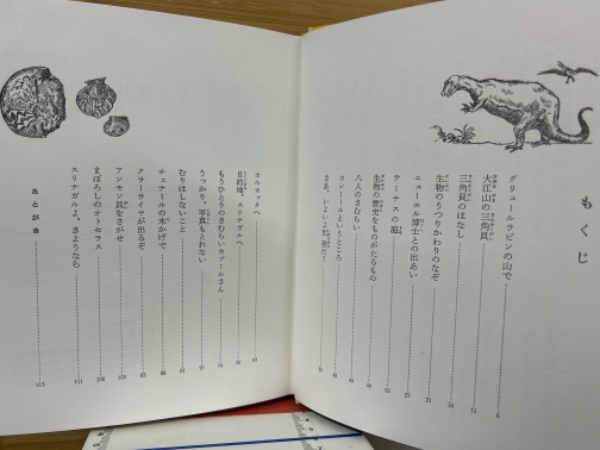 もくじ
グリュールラビンの山で
大江山の三角貝
三角貝のはなし
生物のうつりかわりのなぞ
ニューエル博士との出あい
テーチスの海
生物の歴史をものがたるもの
八人のさむらい
カシミールというところ
さあ、いよいよ出発だ!
カルカッタへ
目的地、スリナガルへ
もうひとりのさむらいカプールさん
うっかり、写真もとれない
むりはしないこと
チェナールの木かげで
クラーライヤが出るぞ
アンモン貝をさがせ
まぼろしのオトセラス
スリナガルよ、さようなら 111
あとがき 115